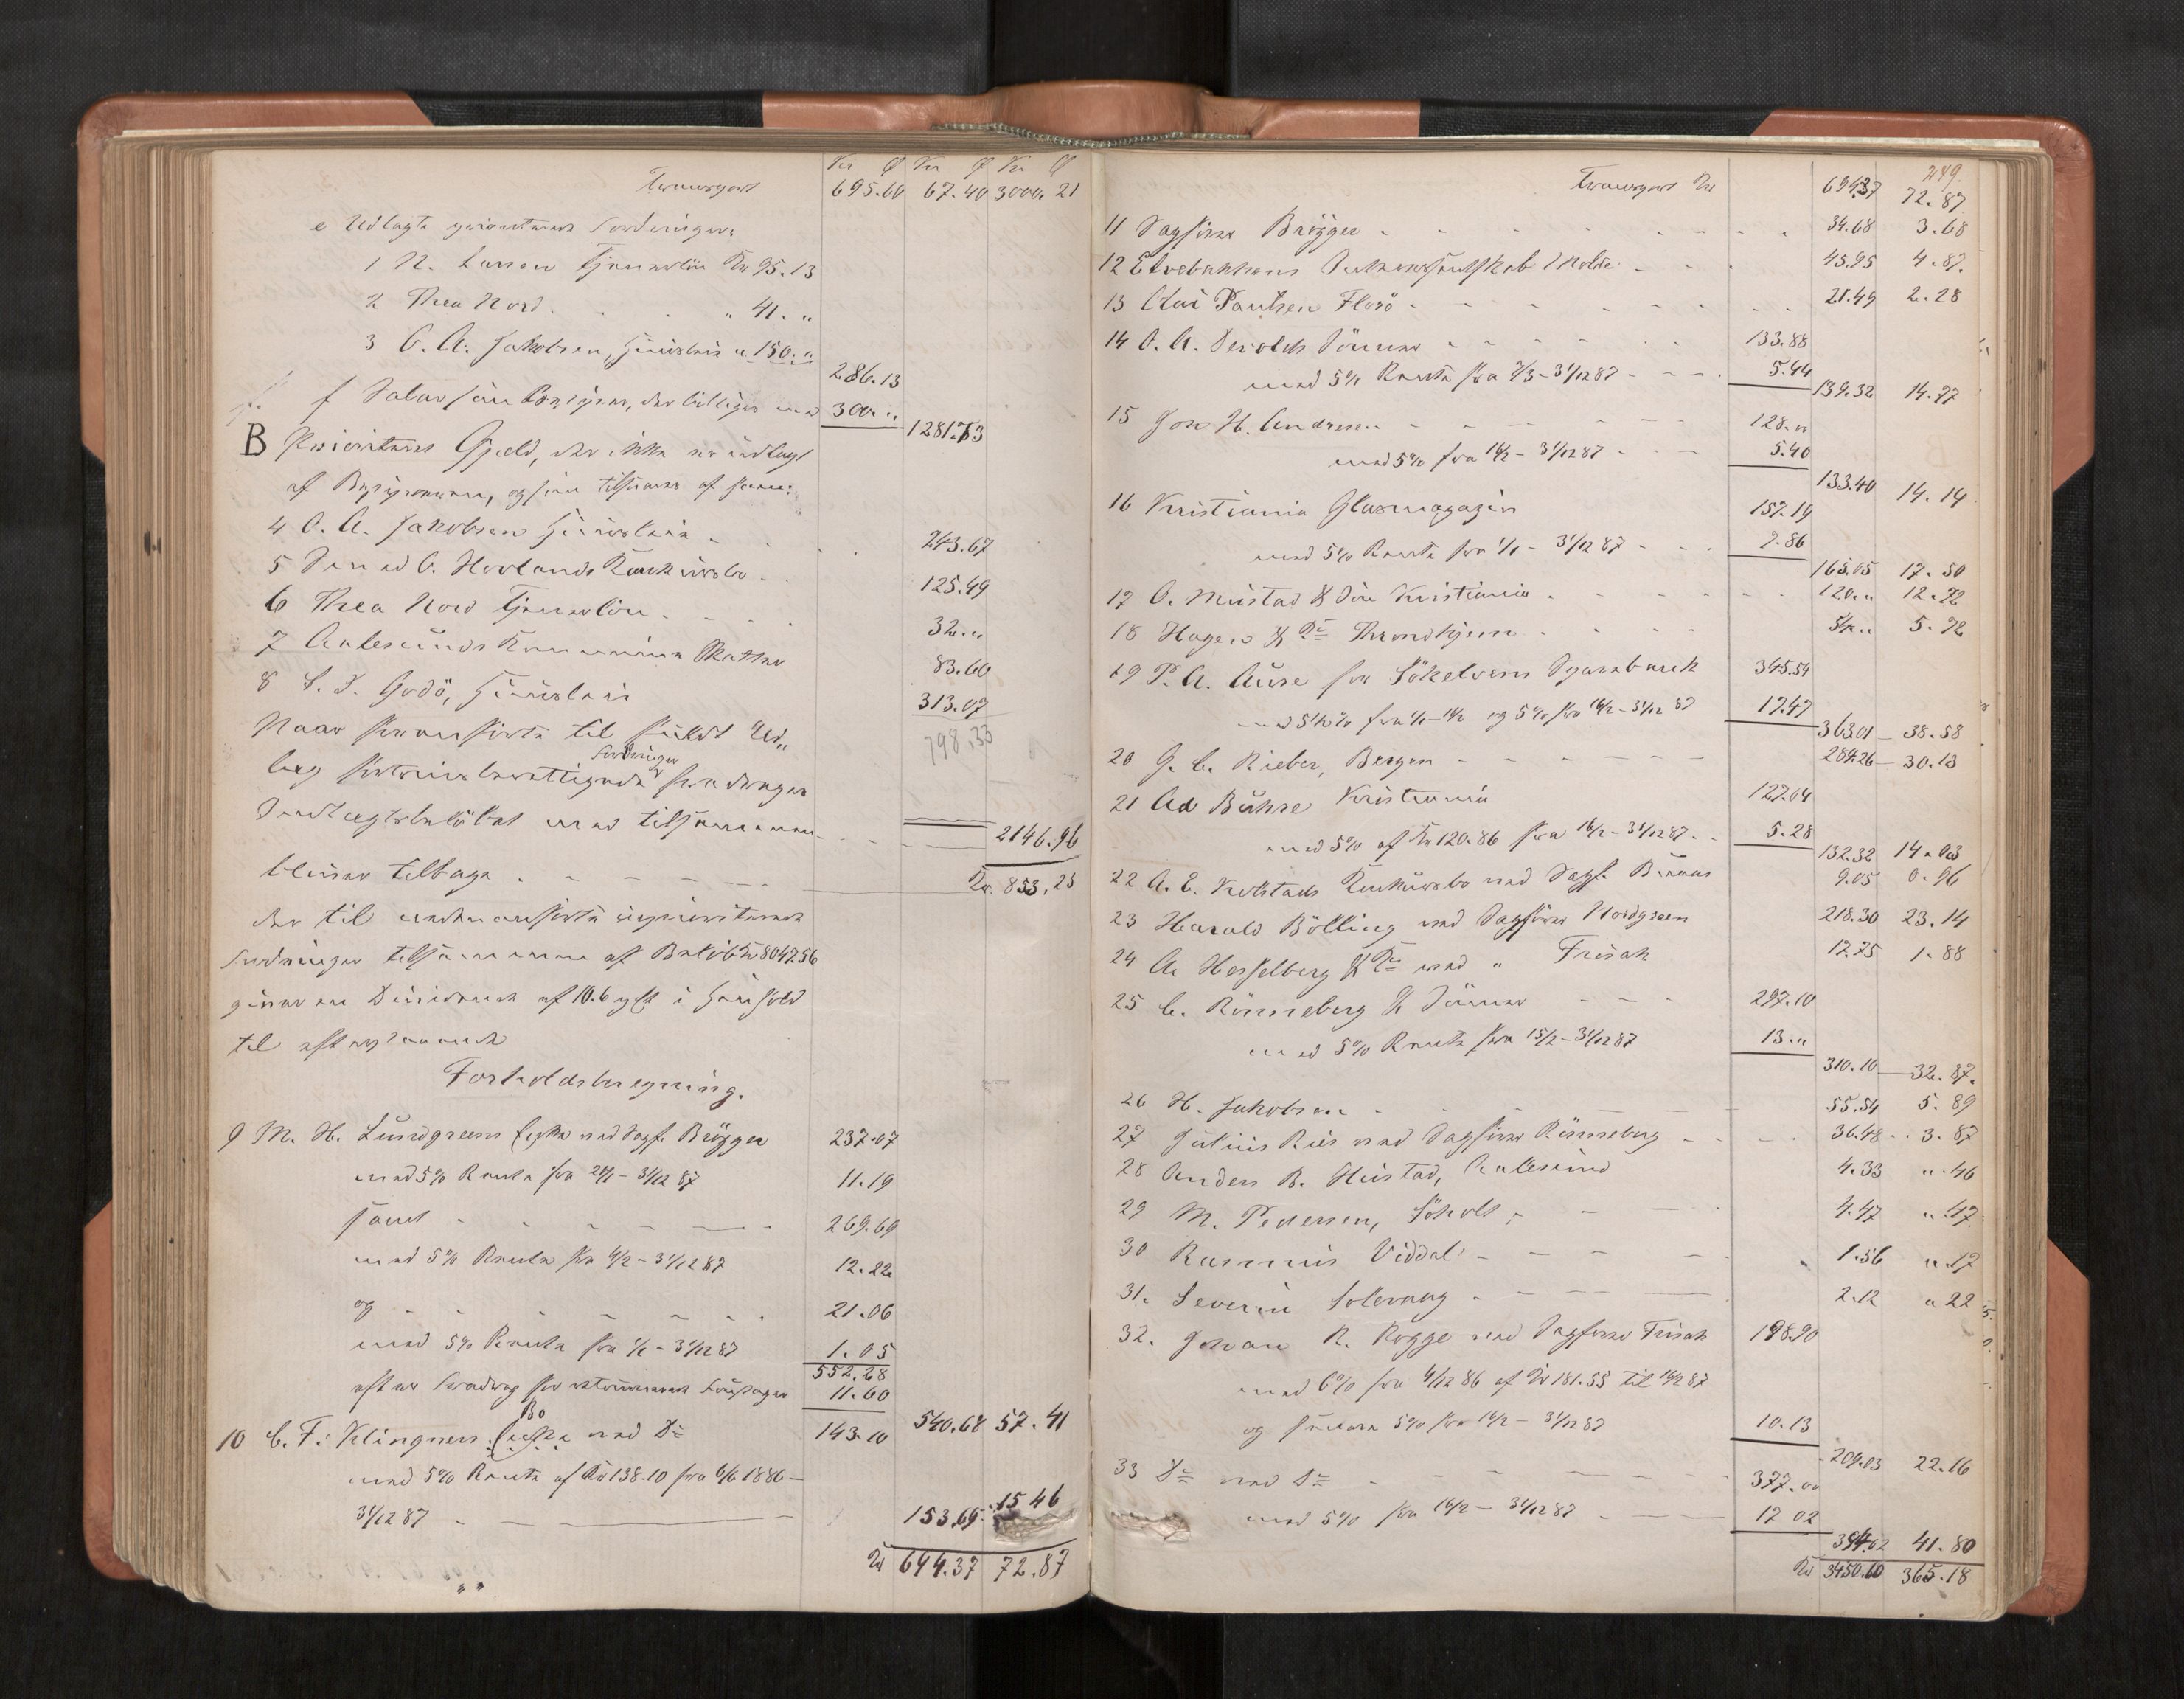 Kr Ø Kr Ø Kr Ø
Transport 695.60 67.40 3000.21
e Udlagte prioriterede Fordringer:
1 N. Larsen Tjenerløn Kr 95.13
2 Thea Nord " 41. "
3 O. A. Jakobsen, Huusleie " 150. "
286.13
f Salær før Bestyrer, der billiges med 300. "
1281.73
B Prioriteret Gjæld, der ikke er udlagt
af Bestyreren, og sin tilsvarer af samme:
4 O. A. Jakobsen Huusleie 243.67
5 Sam ad O. Hovlands Konkursbo 125.49
6 Thea Nord Tjenerløn 32. "
7 Aalesunds Kommune Skatter 83.60
8 S. J. Godö, Huusleie 313.07
798.33
Naar fornævnte til fuldt Ud„
læg fortrinsberettigede Fordringer fradrages
Indtægtsbeløbet med tilsammen 2146.96
bliver tilbage Kr. 853.25
der til nedennævnte uprioriterede
Fordringer tilsammen af Beløb Kr 8047.56
giver en Dividende af 10.6 pCt i Henhold
til efterstaaende
Forholdsberegning.
9 M. H. Lundgreens Enke ved Sagf. Brögger 237.07
med 5% Rente fra 21/1 - 31/12 87 11.19
samt 269.69
med 5% Rente fra 4/2 - 31/12 87 12.22
og 21.06
med 5% Rente fra 1/1 - 31/12 87 1.05
552.28
efter Fradrag for returnerede Fustager 11.60
540.68 57.41
10 C. F. Klingners Bo ved Do 143.10
med 5% Rente af Kr 138.10 fra 6/6 1886 -
31/12 87 153.69 15 46
Kr 694.37 72.87
249.
Transport Kr 694.37 72.87
11 Sagfører Brögger 34.68 3.68
12 Elvebakkens Interessentskab Molde 45.95 4.87
13 Olai Paulsen Florö 21.49 2.28
14 O. A. Devolds Sönner 133.88
med 5% Rente fra 7/3 - 31/12 87 5.44
139.32 14.77
15 Joh H. Andresen 128. "
med 5% fra 16/2 - 31/12 87 5.40
133.40 14.14
16 Kristiania Glasmagazin 157.19
med 5% Rente fra 1/1 - 31/12 87 7.86
165.05 17.50
17 O. Mustad & Sön Kristiania 120. " 12.72
18 Hagen & Co Throndhjem 54. " 5.72
19 P. A. Aure for Sökelvens Sparebank 345.54
med 5½% fra 1/1 - 16/2 og 5% fra 16/2 - 31/12 87 17.47
363.01 38.58
20 G. C. Rieber, Bergen 284.26 30.13
21 Ad Bühre Kristiania 127.04
med 5% af Kr 120.86 fra 16/2 - 31/12 87 5.28
132.32 14.03
22 A. E. Kolstads Konkursbo ved Sagf. 9.05 0.96
23 Harald Bölling ved Sagfører Nordgreen 218.30 23.14
24 A. Hesselberg & Co ved " Frisak 17.75 1.88
25 C. Rönneberg & Sönner 297.10
med 5% Rente fra 15/2 - 31/12 87 13. "
310.10 32.87.
26 H. Jakobsen 55.54 5.89
27 Julius Ries ved Sagfører Rönneberg 36.48 3.87
28 Anders B. Hustad, Aalesund 4.33 " 46
29 M. Pedersen, Söholt 4.47 " 47
30 Rasmus Viddal 1.56 " 17
31. Severin Solevaag 2.12 " 22
32. Johan R. Rogge ved Sagfører Frisak 198.90
med 6% fra 4/12 86 af Kr 181.55 til 16/2 87
og videre 5% fra 16/2 - 31/12 87 10.13
209.03 22.16
33 Do ved Do 377.00
med 5% fra 16/2 - 31/12 87 17 02
394.02 41.80
Kr 3450.60 365.18